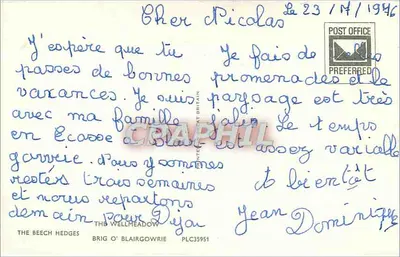 Cher Nicolas
Le 23/7/1976
POST OFFICE
PREFERRED
J'espère que tu
passes de bonnes
vacances. Je suis
avec ma famille
en Ecosse
gowrie. Nous y sommes
restés trois semaines
et nous repartons
demain pour Dijon
Je fais de
promenades et le
paysage est très
joli. Le temps
est assez variable
A bientôt
Jean Dominique
CPARPHIL
THE WELLMEADOW
THE BEECH HEDGES
BRIG O' BLAIRGOWRIE
PLC35951